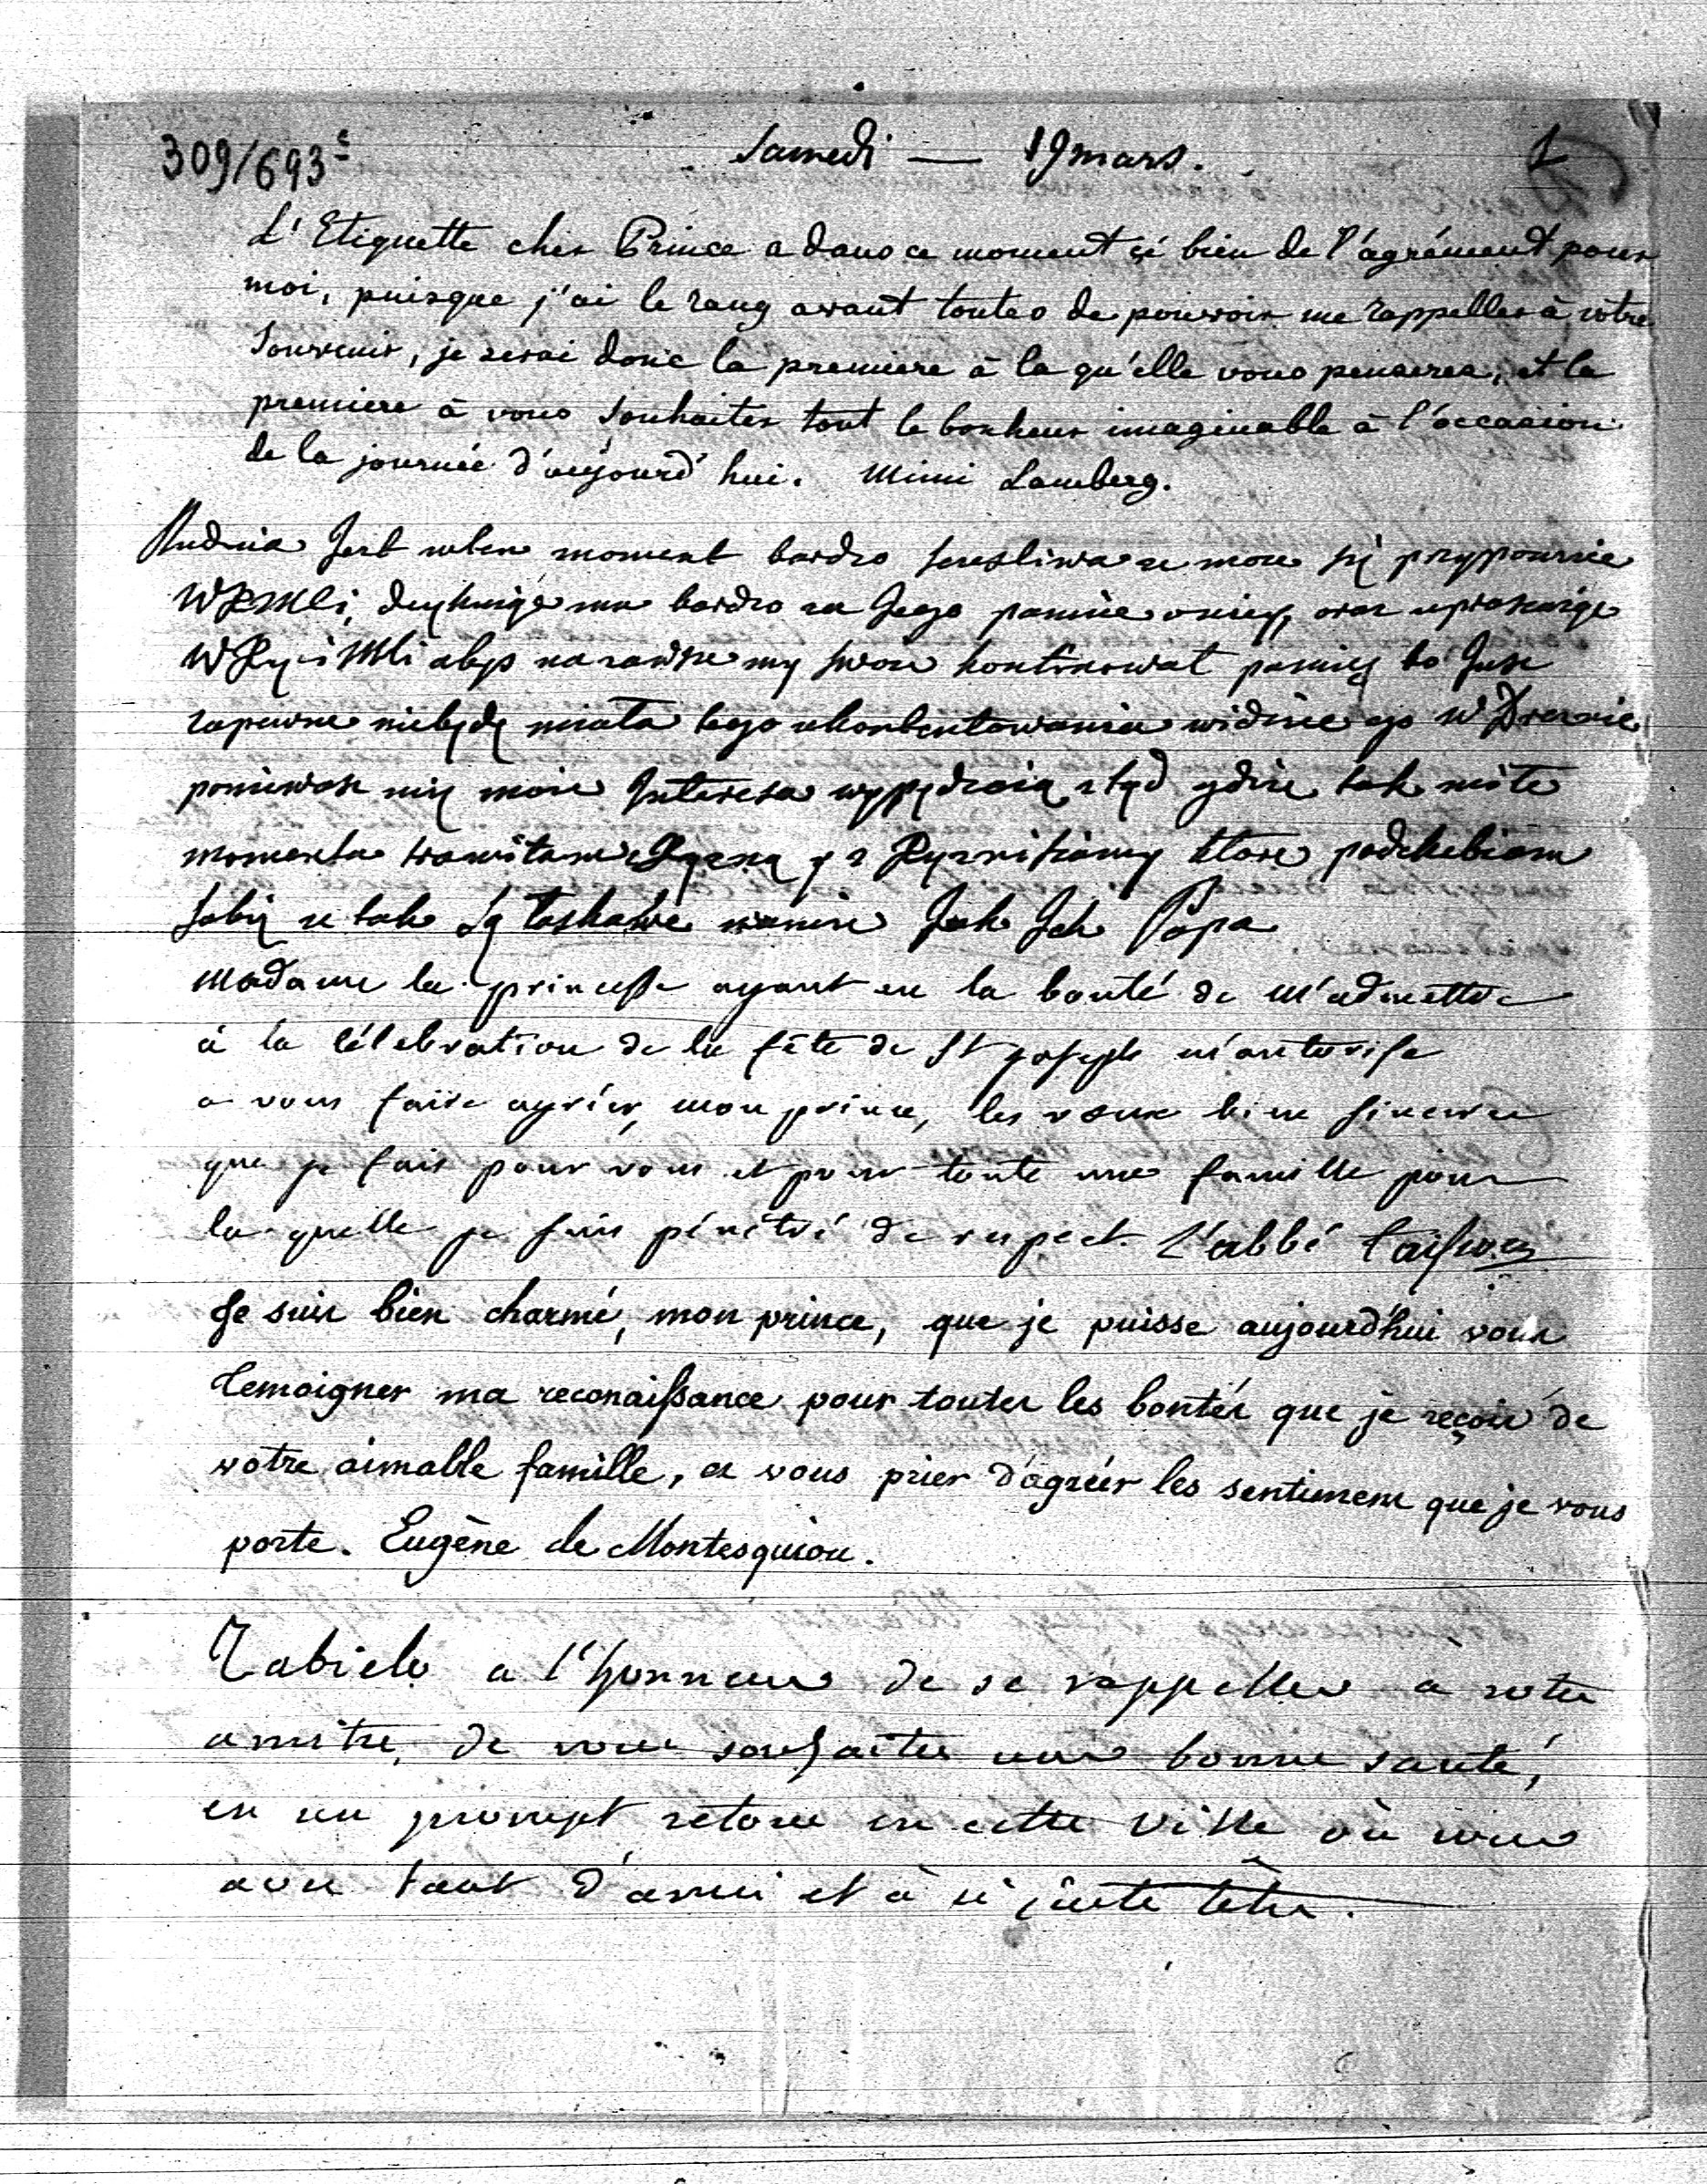 309/693
Samedi — 19 mars.
1
L'Etiquette cher Prince a dans ce moment çi bien de l'agrément pour
moi, puisque j'ai le rang avant toutes de pouvoir me rappeller à vôtre
Souvenir, je serai donc la premiere à la qu'elle vous penserez, et la
premiere à vous Souhaiter tout le bonheur imaginable à l'occasion
de la journée d'aujourd'hui. Mimi Lamberg.
Jest wten moment bardzo ze moze się
bardzo za Jego pamięc oraz upraszaiąc
abyś na zawsze my swoie kontinował pamięc bo Jusz
zapewne niebędę miała tego ukontentowania widziec go w Dreznie
poniewasz mię moie Interesa wypędzaią z tąd gdzie tak miłe
momenta trawiłam z y z ktore podchebiam
sobię ze tak Są łaskawe namnie Jak Ich Papa
Madame la princesse ayant eu la bonté de m'admettre
à la célebration de la fête de St joseph m'autorise
a vous faire agréer, mon prince, les vœux bien sinceres
que je fais pour vous et pour toute une famille pour
la quelle je suis pénétré de respect. L'abbé
Je suis bien charmé, mon prince, que je puisse aujourd'hui vous
temoigner ma reconaissance pour toutes les bontés que je reçois de
votre aimable famille, et vous prier d'agréér les sentimens que je vous
porte. Eugène de Montesquiou.
a l'honneur de se rappeller a votre
amitie, de vous souhaiter une bonne santé,
en un prompt retour en cette ville où vous
avez tant d'amis et à si juste têtre.